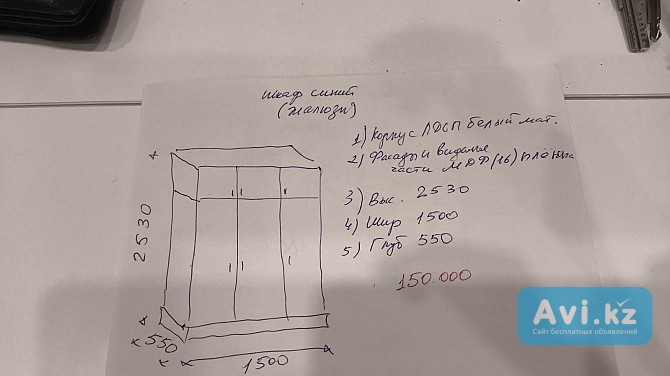 шкаф синий
(жалюзи)
1) Корпус ЛДСП белый мат.
2) Фасады и видимые
части МДФ (16) плёнка
3) Выс. 2530
4) Шир 1500
5) Глуб 550
150.000
2530
550
1500
Avi.kz
Сайт бесплатных объявлений